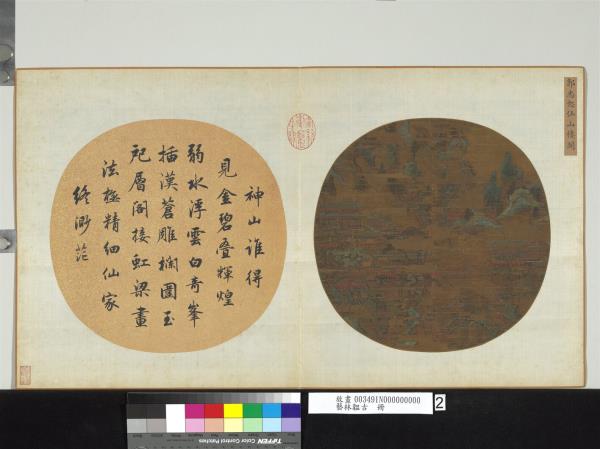 郭忠恕仙山樓閣
神山誰得
見金碧疊輝煌
弱水浮雲白奇峯
插漢蒼雕欄圍玉
戺層閣接虹梁畫
法極精細仙家
終渺茫
故畫 003491N000000000
藝林韞古 冊
2
TIFFEN Color Control Patches